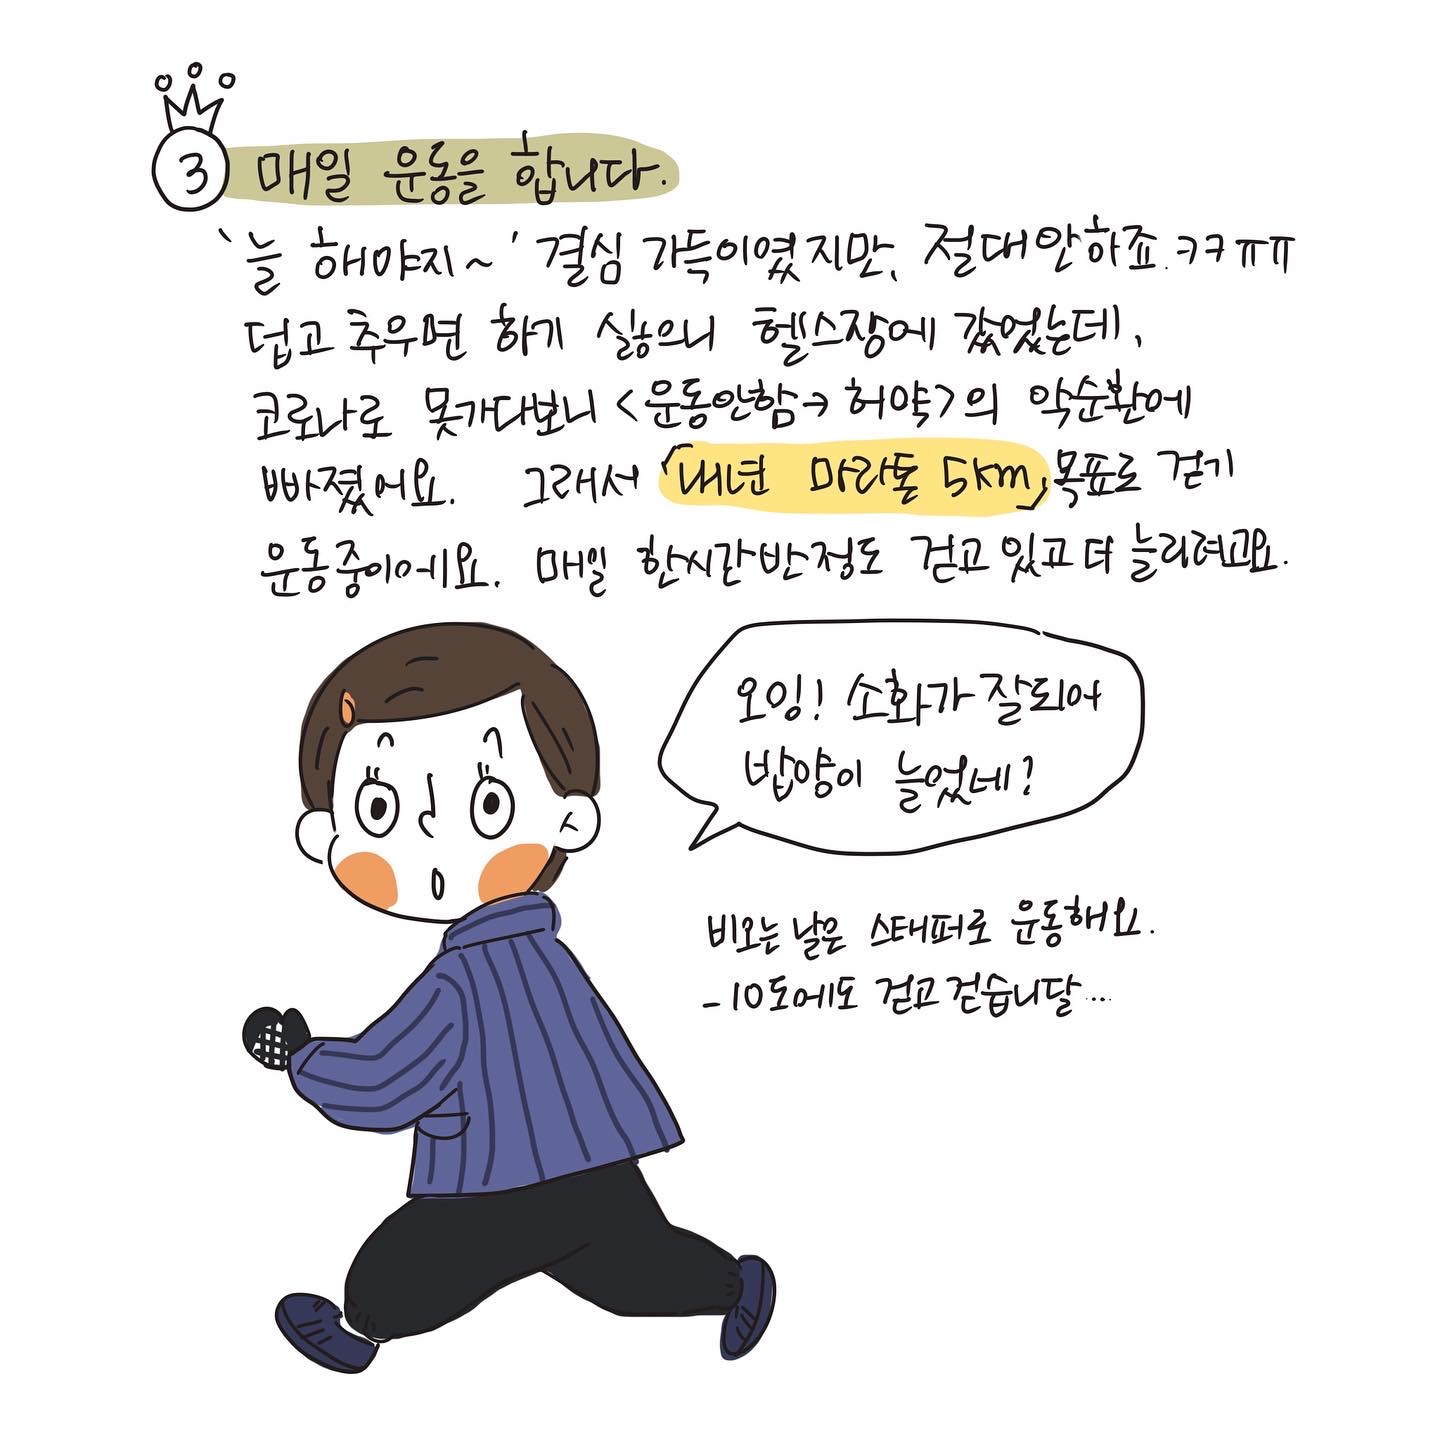 3 매일 운동을 합니다.
'늘 해야지~' 결심 가득이였지만, 절대안하죠.ㅋㅋㅠㅠ
덥고 추우면 하기 싫으니 헬스장에 갔었는데,
코로나로 못가다보니 <운동안함→허약>의 악순환에
빠졌어요. 그래서 「내년 마라톤 5km」목표로 걷기
운동중이에요. 매일 한시간반정도 걷고있고 더 늘리려고요.
오잉! 소화가 잘되어
밥양이 늘었네?
비오는 날은 스태퍼로 운동해요.
-10도에도 걷고 걷습니달...